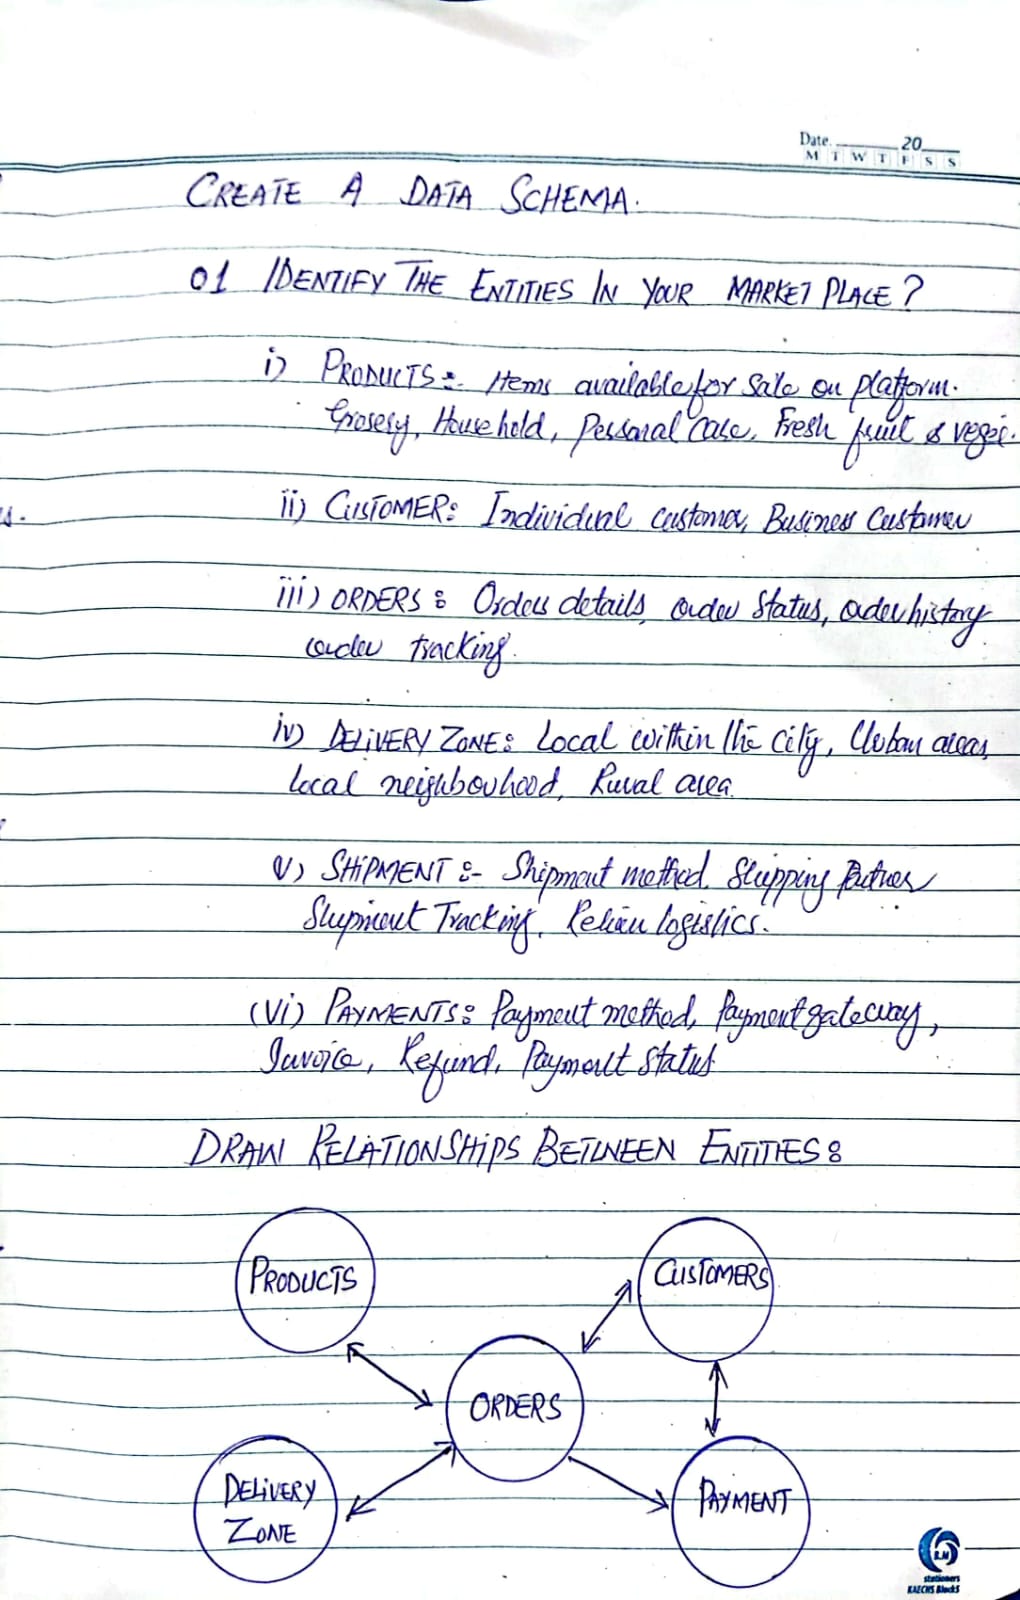 Date. 20
M T W T F S S
CREATE A DATA SCHEMA.
01 IDENTIFY THE ENTITIES IN YOUR MARKET PLACE?
i) PRODUCTS:- Items available for Sale on platform.
Grosery, Household, Personal Care, Fresh fruit & veges.
s.
ii) CUSTOMER: Individual customer, Business Customer
iii) ORDERS: Orders details, order Status, order history
order tracking.
iv) DELIVERY ZONE: Local within the city, Urban areas,
local neighbourhood, Rural area.
v) SHIPMENT:- Shipment method, Shipping Partner
Shipment Tracking, logistics.
(vi) PAYMENTS: Payment method, Payment gateway,
Invoice, Refund, Payment Status
DRAW RELATIONSHIPS BETWEEN ENTITIES:
PRODUCTS
CUSTOMERS
ORDERS
DELIVERY
ZONE
PAYMENT
stationers
KAECHS Block5